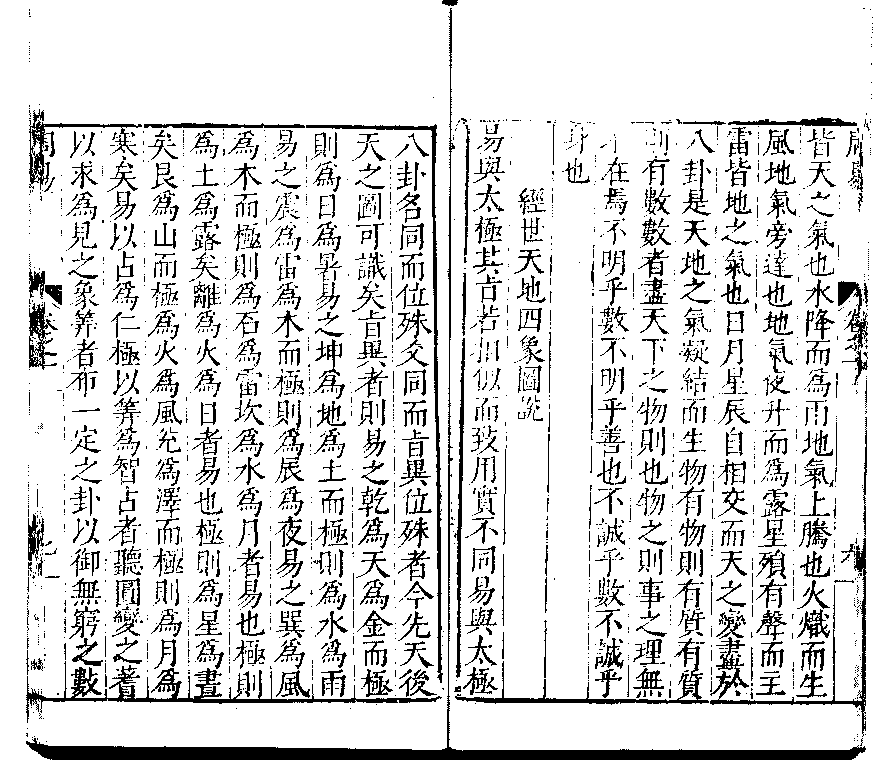 周易 卷之一 九
皆天之氣也水降而爲雨地氣上騰也火熾而生
風地氣旁達也地氣使升而爲露星殞有聲而主
雷皆地之氣也日月星辰自相交而天之變盡於
八卦是天地之氣凝結而生物有物則有質有質
則有數數者盡天下之物則也物之則事之理無
不在焉不明乎數不明乎善也不誠乎數不誠乎
身也
經世天地四象圖說
易與太極其旨若相似而致用實不同易與太極
八卦名同而位殊爻同而旨異位殊者今先天後
天之圖可識矣旨異者則易之乾爲天爲金而極
則爲日爲暑易之坤爲地爲土而極則爲水爲雨
易之震爲雷爲木而極則爲辰爲夜易之巽爲風
爲木而極則爲石爲雷坎爲水爲月者易也極則
爲土爲露矣離爲火爲日者易也極則爲星爲晝
矣艮爲山而極爲火爲風兌爲澤而極則爲月爲
寒矣易以占爲仁極以筭爲智占者聽圓變之蓍
以求爲見之象筭者布一定之卦以御無窮之數
周易 卷之一